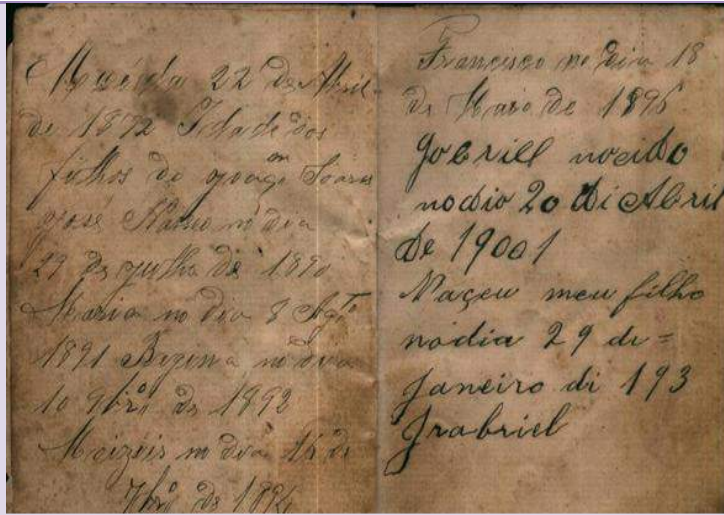 22 de Abril
de 1892 Idade dos
filhos de Soares
José no dia
29 de julho de 1890
Maria no dia 8 Agto
1891 no dia
10 9bro de 1892
Moizeis no dia 16 de
7bro de 1894
Francisco no dia 18
de Maio de 1896
Gobrill nocido
nodio 20 di Abril
de 19001
Naçeu meu filho
nodia 29 de =
Janeiro di 193
Grabriel